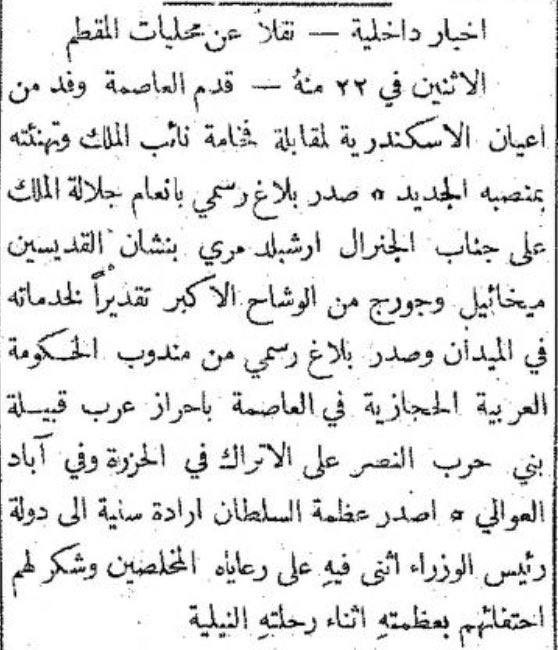 اخبار داخلية — نقلاً عن محليات المقطم
الاثنين في ٢٢ منهُ — قدم العاصمة وفد من
اعيان الاسكندرية لمقابلة فخامة نائب الملك وتهنئته
بمنصبه الجديد ۞ صدر بلاغ رسمي بانعام جلالة الملك
على جناب الجنرال ارشبلد مري بنشان القديسين
ميخائيل وجورج من الوشاح الاكبر تقديراً لخدماته
في الميدان وصدر بلاغ رسمي من مندوب الحكومة
العربية الحجازية في العاصمة باحراز عرب قبيلة
بني حرب النصر على الاتراك في الحزرة وفي آباد
العوالي ۞ اصدر عظمة السلطان ارادة سنية الى دولة
رئيس الوزراء اثنى فيهِ على رعاياه المخلصين وشكر لهم
احتفائهم بعظمتهِ اثناء رحلتهِ النيلية